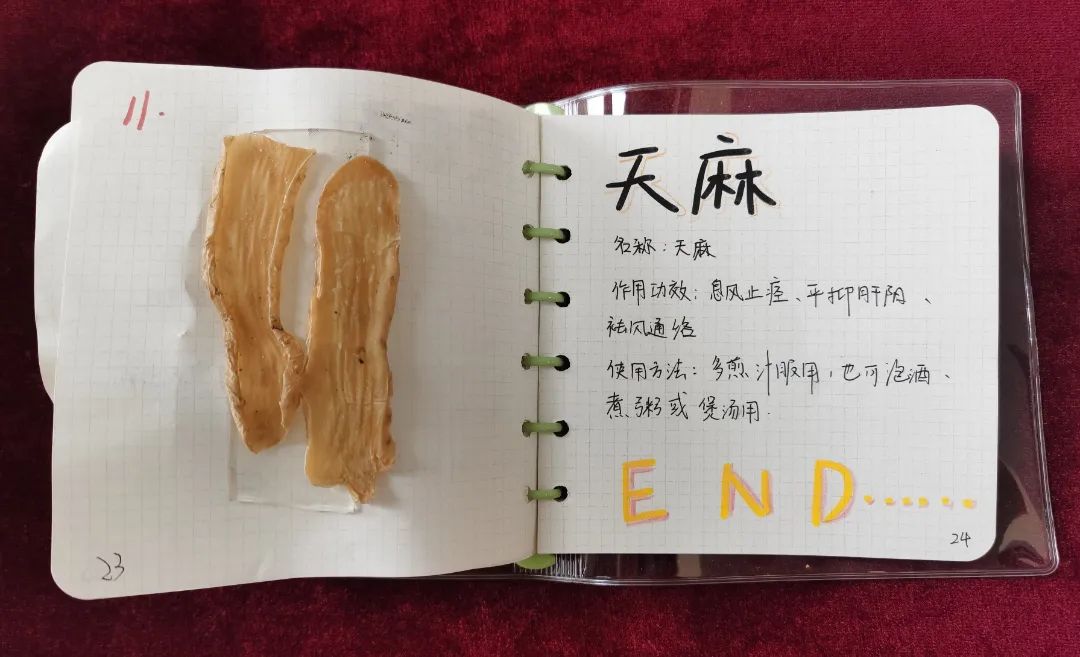 11.
23
天麻
名称：天麻
作用功效：息风止痉、平抑肝阴、
祛风通络
使用方法：多煎汁服用，也可泡酒、
煮粥或煲汤用.
END......
24